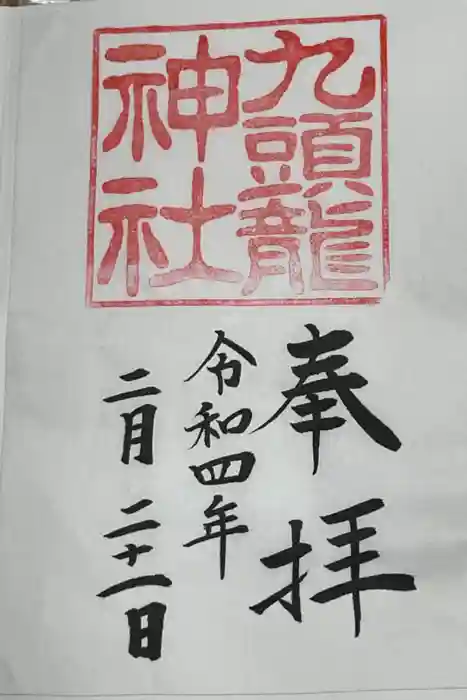 九頭龍
神社
奉拝
令和四年
二月二十一日